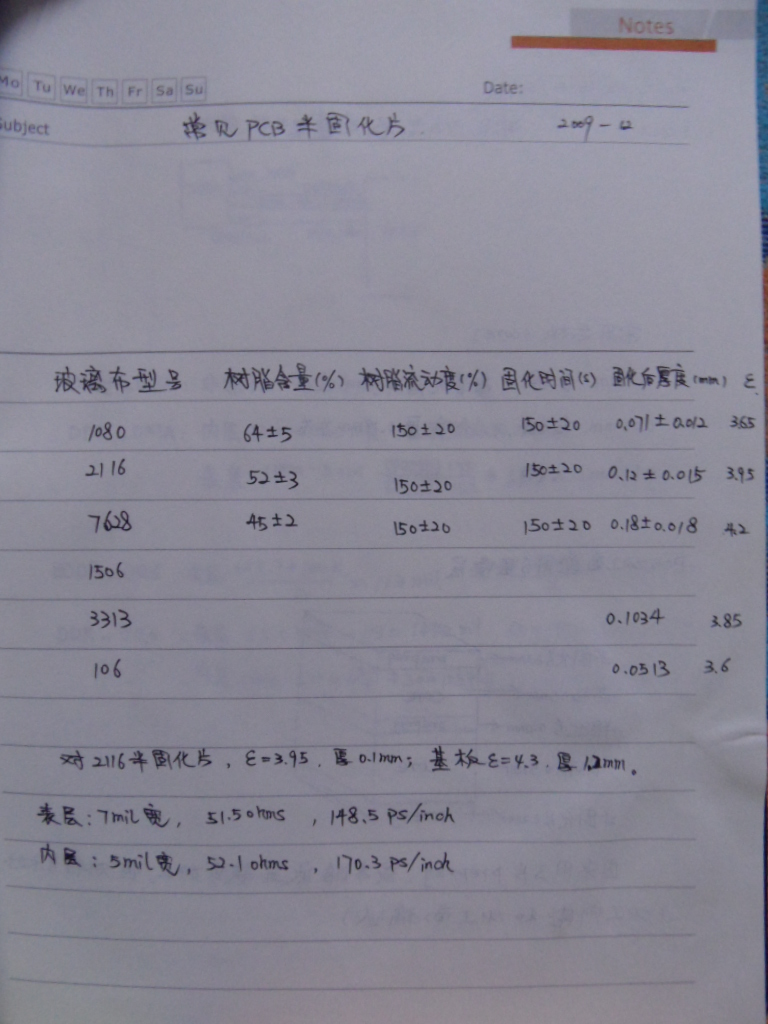 Notes
Mo Tu We Th Fr Sa Su Date:
Subject 常见PCB半固化片 2009-12
玻璃布型号 树脂含量(%) 树脂流动度(%) 固化时间(s) 固化后厚度(mm) ε
1080 64±5 150±20 150±20 0.071±0.012 3.65
2116 52±3 150±20 150±20 0.12±0.015 3.95
7628 45±2 150±20 150±20 0.18±0.018 4.2
1506
3313 0.1034 3.85
106 0.0513 3.6
对2116半固化片，ε=3.95，厚0.1mm；基板ε=4.3，厚1.2mm。
表层：7mil宽，51.5ohms，148.5ps/inch
内层：5mil宽，52.1ohms，170.3ps/inch